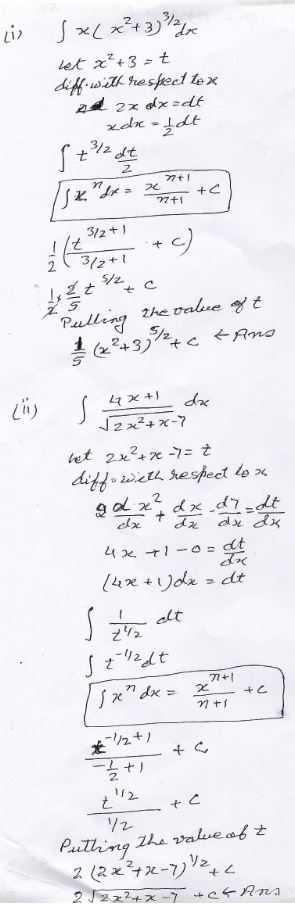 (i) ∫ x(x²+3)^3/2 dx
let x²+3 = t
diff. with respect to x
2x dx = dt
x dx = 1/2 dt
∫ t^3/2 dt/2
∫x^n dx = x^(n+1)/(n+1) + c
1/2 (t^(3/2+1)/(3/2+1) + c)
1/2 × 2/5 t^5/2 + c
Putting the value of t
1/5 (x²+3)^5/2 + c ← Ans
(ii) ∫ (4x+1)/√(2x²+x-7) dx
let 2x²+x-7 = t
diff. with respect to x
2 dx²/dx + dx/dx - d7/dx = dt/dx
4x+1-0 = dt/dx
(4x+1)dx = dt
∫ 1/t^1/2 dt
∫ t^-1/2 dt
∫x^n dx = x^(n+1)/(n+1) + c
t^(-1/2+1)/(-1/2+1) + c
t^1/2/(1/2) + c
Putting the value of t
2(2x²+x-7)^1/2 + c
2√(2x²+x-7) + c ← Ans